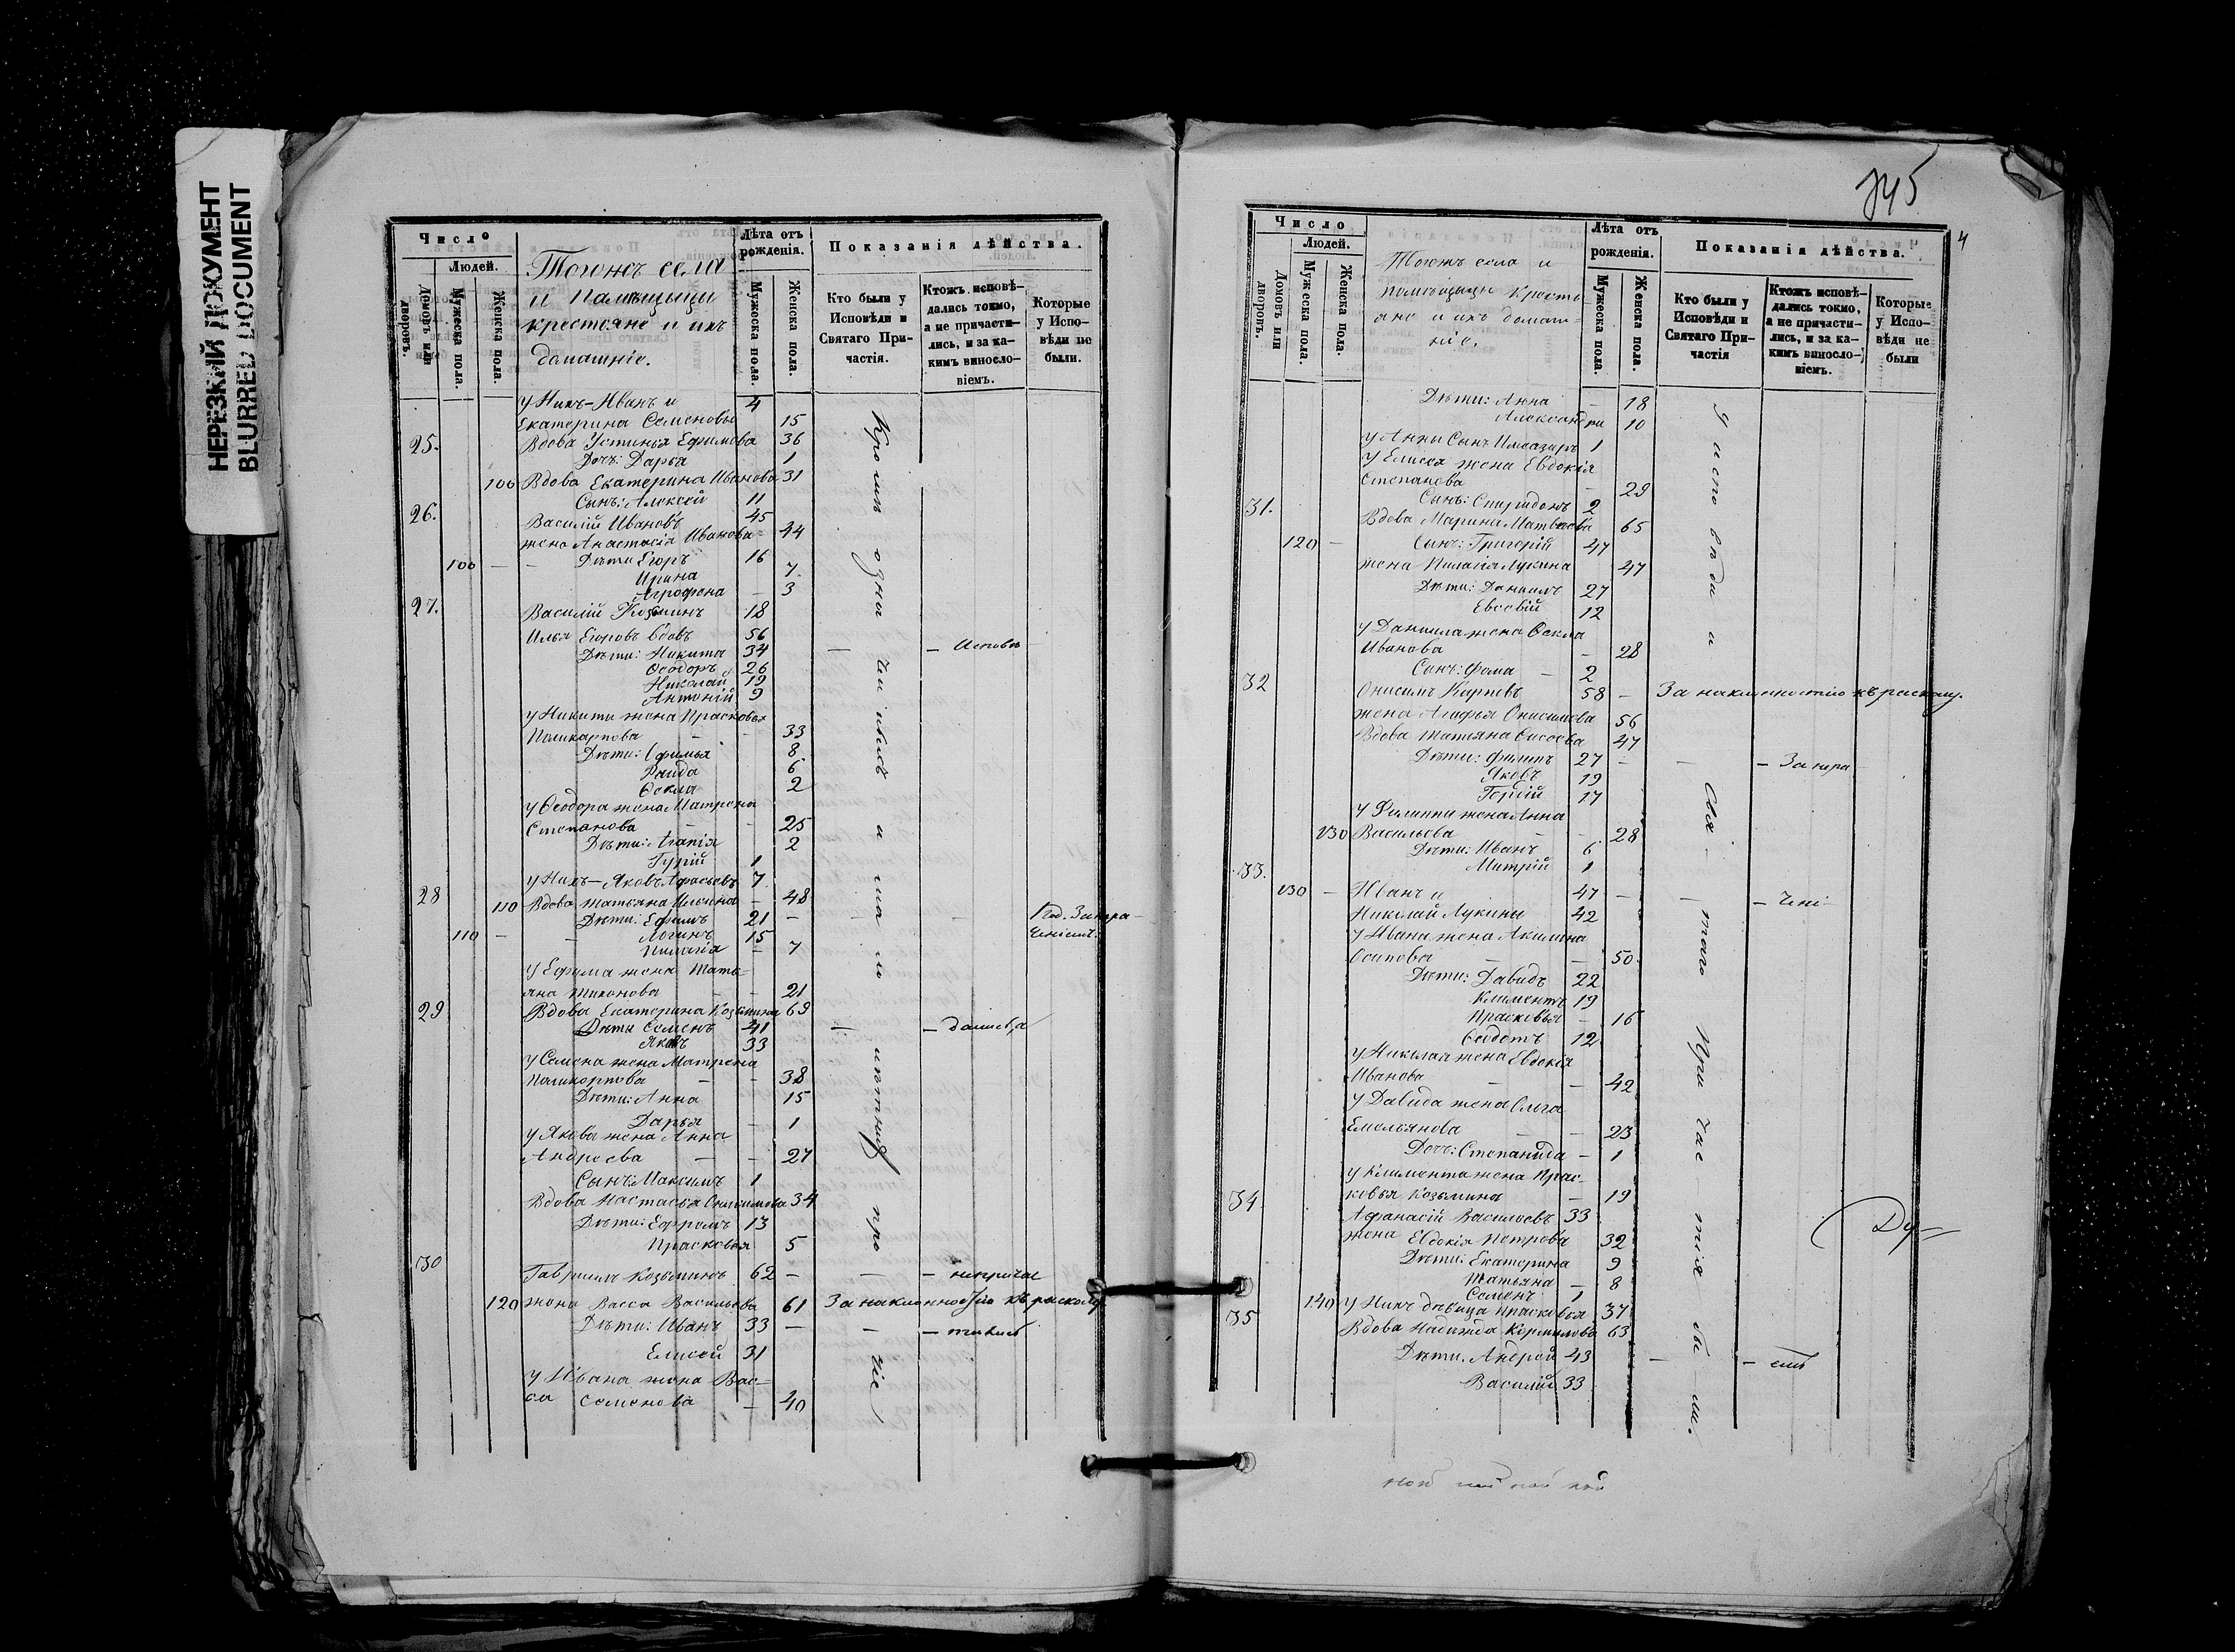 НЕРЕЗКИЙ ДОКУМЕНТ
BLURRED DOCUMENT
Число
Людей.
Домовъ или дворовъ.
Мужеска пола.
Женска пола.
Тогожъ села
и Помѣщицы
крестьяне и ихъ
домашніе.
Лѣта отъ рожденія.
Мужеска пола.
Женска пола.
Показанія дѣйства.
Кто были у Исповѣди и Святаго Причастія.
Ктожъ исповѣ-
дались токмо,
а не причасти-
лись, и за ка-
кимъ виносло-
віемъ.
Которые
у Испо-
вѣди не
были.
у Нихъ-Иванъ и 4
Екатерина Семеновы 15
25. Вдова Устинья Ефимова 36
Дочь: Дарья 1
100 Вдова Екатерина Иванова 31
Сынъ: Алексей 11
26. Василій Ивановъ 45
жена Анастасія Иванова 44
100 Дѣти Егоръ 16
Ирина 7
Агрофена 3
27. Василій Козминъ 18
Илья Егоровъ вдовъ 56
Дѣти: Никита 34 Исповѣ
Ѳеодоръ 26
Николай 19
Антоній 9
у Никиты жена Прасковья
Поликарпова 33
Дѣти: Ефимья 8
Раида 6
Ѳекла 2
у Ѳеодора жена Матрена
Степанова 25
Дѣти: Агапія 2
Гурій 1
у Нихъ-Яковъ Афанасьевъ 7
28 110 Вдова Татьяна Ильина 48
Дѣти: Ефимъ 21
110 Логинъ 15
Пилагія 7
у Ефима жена Тать-
яна Тихонова 21
29 Вдова Екатерина Козьмина 69
Дѣти Семенъ 41
Яковъ 33
у Семена жена Матрена
Поликорпова 38
Дѣти: Анна 15
Дарья 1
у Якова жена Анна
Андреева 27
Сынъ: Максимъ 1
Вдова Настасья Онисимова 34
Дѣти: Ефремъ 13
Прасковья 5
30 Гавриилъ Козьминъ 62 непричас
120 жена Васса Васильева 61 За наклонностію къ расколу
Дѣти: Иванъ 33
Елисей 31
у Ивана жена Вас-
са Семенова 40
Кромѣ
745
4
Число
Людей.
Домовъ или дворовъ.
Мужеска пола.
Женска пола.
Тогожъ села и
помѣщицы кресть-
яне и ихъ домаш-
ніе.
Лѣта отъ рожденія.
Мужеска пола.
Женска пола.
Показанія дѣйства.
Кто были у Исповѣди и Святаго Причастія
Ктожъ исповѣ-
дались токмо,
а не причасти-
лись, и за ка-
кимъ виносло-
віемъ.
Которые
у Испо-
вѣди не
были
Дѣти: Анна 18
Александра 10
у Анны Сынъ 1
у Елисея жена Евдокія
Степанова 29
Сынъ: Спиридонъ 2
31. Вдова Марина Матвеева 65
120 Сынъ: Григорій 47
жена Пилагія Лукина 47
Дѣти: Даниилъ 27
Евсевій 12
у Даниила жена Ѳекла
Иванова 28
Сынъ: Фома 2
32 Онисимъ Карповъ 58 За наклонностію къ расколу.
жена Агафья Онисимова 56
Вдова Татьяна Сисоева 47
Дѣти: Филипъ 27 За пра
Яковъ 19
17
у Филиппа жена Анна
130 Васильева 28
Дѣти: Иванъ 6
Митрій 1
33. 130 Иванъ и 47
Николай Лукины 42
у Ивана жена Акилина
Осипова 50
Дѣти: Давидъ 22
Климентъ 19
Прасковья 16
Ѳедотъ 12
у Николая жена Евдокія
Иванова 42
у Давида жена Ольга
Емельянова 23
Дочь: Степанида 1
у Климента жена Прас-
ковья Козьмина 19
34 Афанасій Васильевъ 33
жена Евдокія Петрова 32
Дѣти: Екатерина 9
Татьяна 8
Семенъ 1
140 у Нихъ дѣвица Прасковья 37
35 Вдова Надежда Корнилова 63
Дѣти: Андрей 43
Василій 33
у исповѣди и Свя-таго При-час-тія бы-ли.